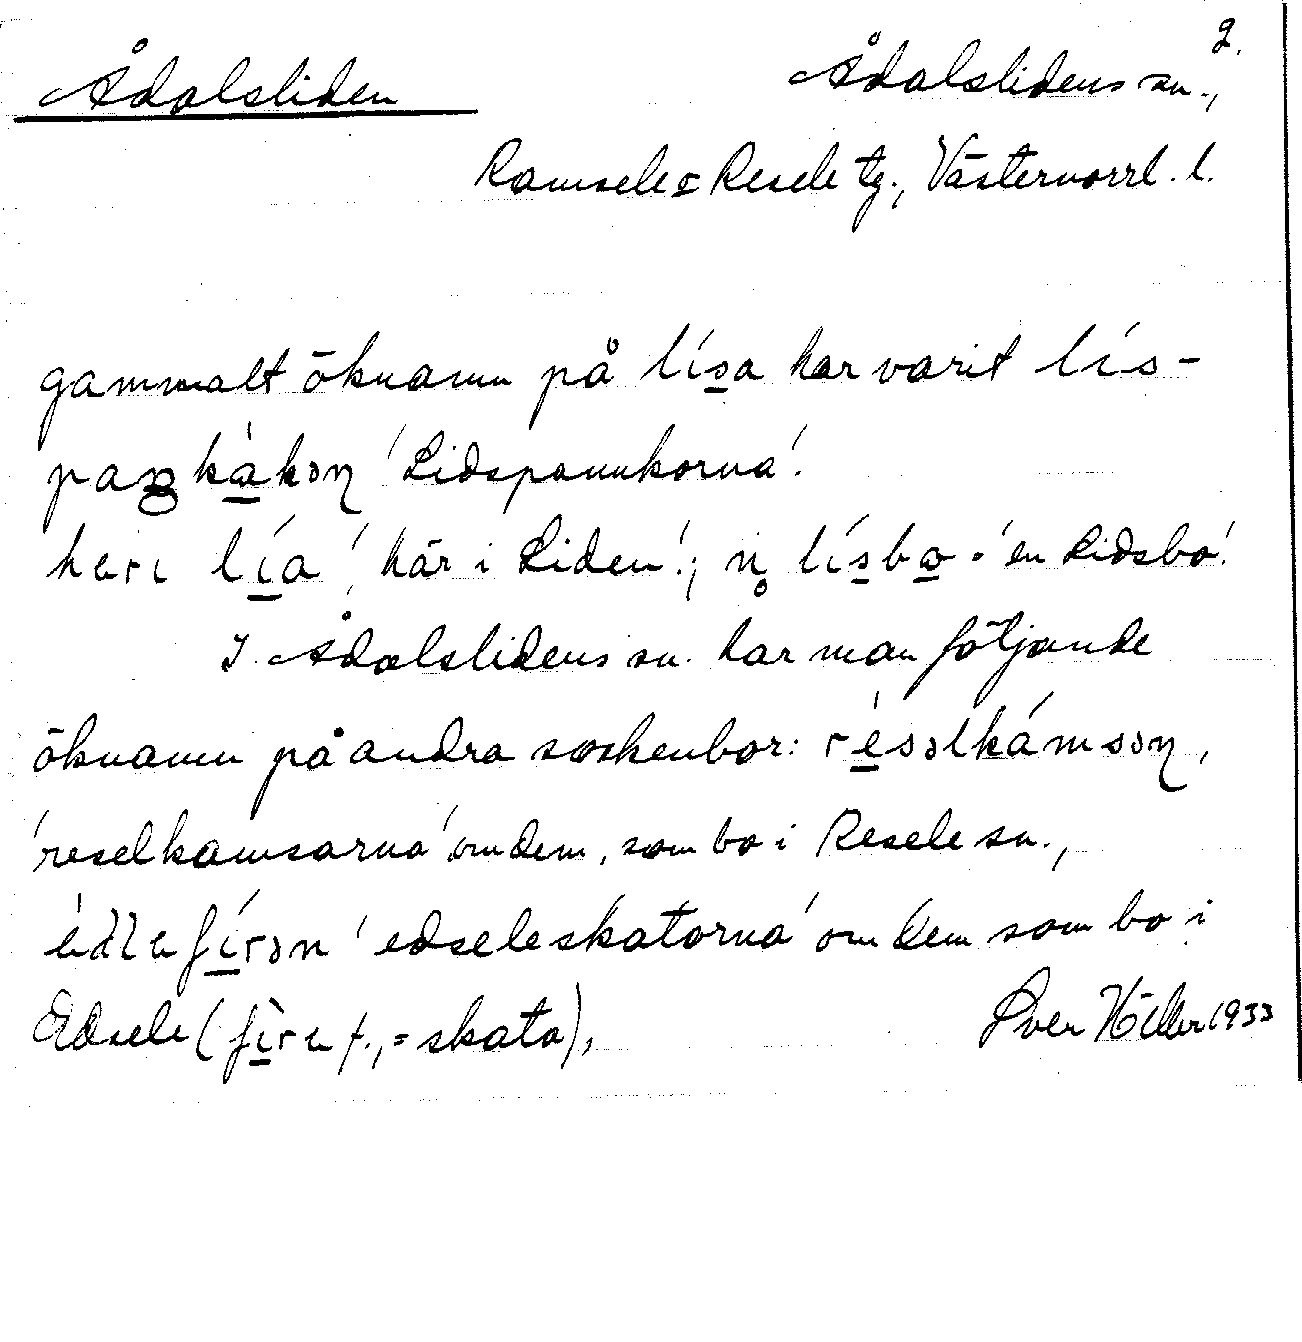 2.
Ådalsliden Ådalslidens sn.,
Ramsele o Resele tg., Västernorrl. l.
gammalt öknamn på lísa har varit lís-
paŋkàkən 'Lidspannkorna'.
hɛri lía 'här i Liden'; n̥ lísbo · 'en Lidsbo'.
I Ådalslidens sn. har man följande
öknamn på andra sockenbor: résəlkámsəɳ,
'reselkamsarna' om dem, som bo i Resele sn.,
'edseleskatorna' om dem som bo i
Edsele (f., = skata),
Iver Höller 1933